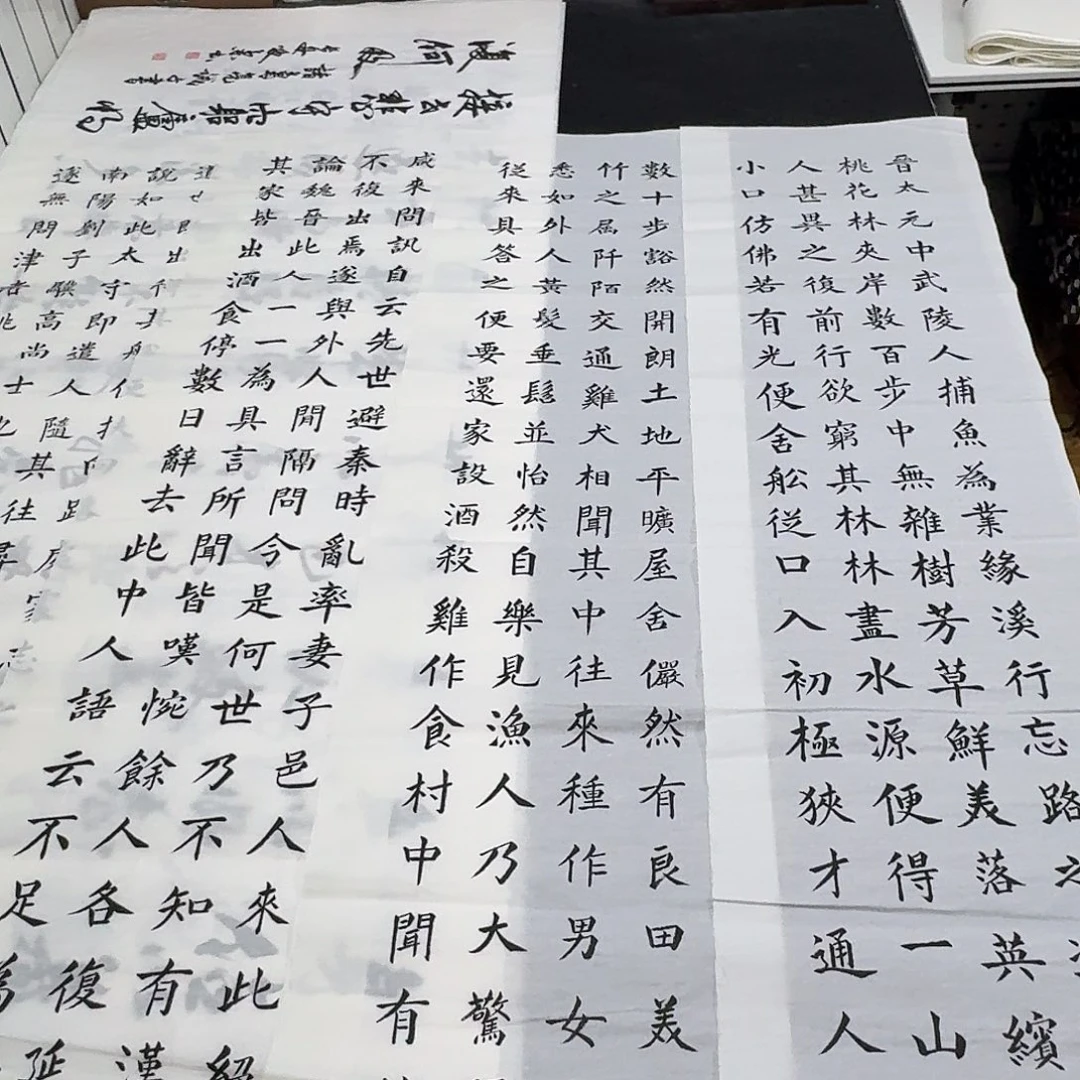 晉太元中武陵人捕魚為業緣溪行忘路之
桃花林夾岸數百步中無雜樹芳草鮮美落英繽
人甚異之復前行欲窮其林林盡水源便得一山
小口仿佛若有光便舍船從口入初極狹才通人
數十步豁然開朗土地平曠屋舍儼然有良田美
竹之屬阡陌交通雞犬相聞其中往來種作男女
悉如外人黃髮垂髫並怡然自樂見漁人乃大驚
從來具答之便要還家設酒殺雞作食村中聞有
咸來問訊自云先世避秦時亂率妻子邑人來此絕
不復出焉遂與外人間隔問今是何世乃不知有漢
論魏晉此人一一為具言所聞皆嘆惋餘人各復延
其家皆出酒食停數日辭去此中人語云不足為
說如此太守即遣人隨其往尋
南陽劉子驥高尚士也
遂無問津者